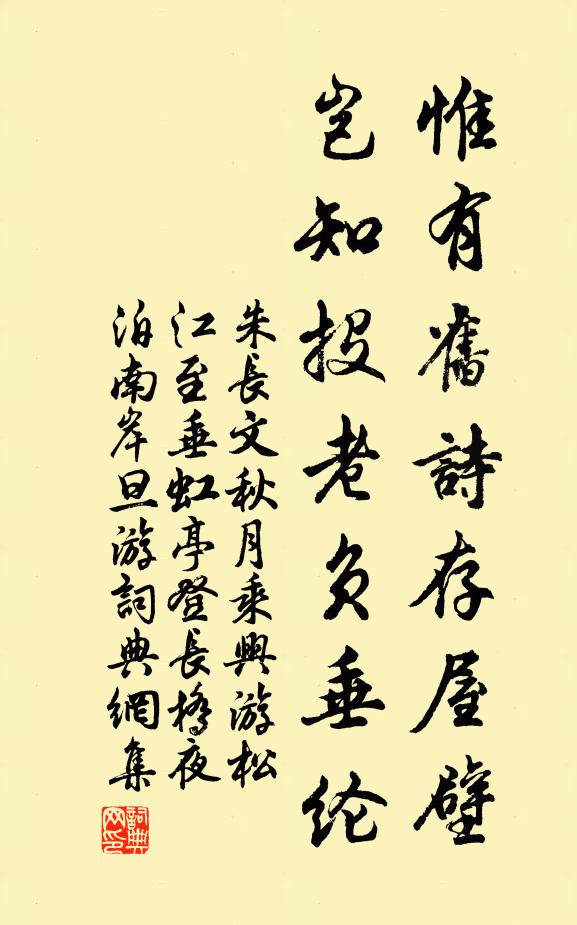 惟有舊詩存屋壁
岂知投老負垂纶
朱長文秋月乘興游松
江至垂虹亭登長橋夜
泊南岸旦游詞典網集
詞典
网印